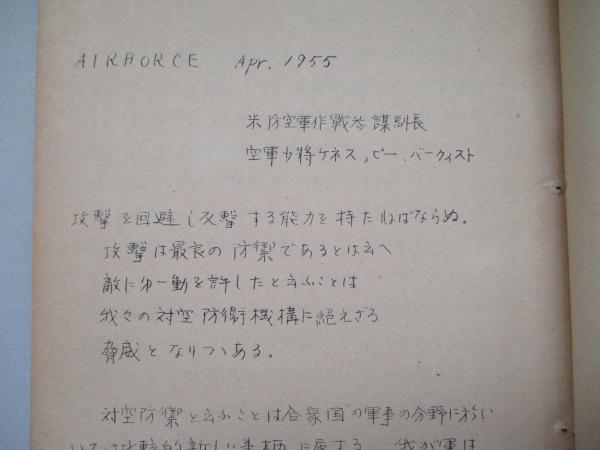 AIRHORCE Apr. 1955
米防空軍作戦参謀副長
空軍少将ケネス、ピー、バークィスト
攻撃を回避し反撃する能力を持たねばならぬ。
攻撃は最良の防禦であるとは云へ
敵に第一動を許したと云ふことは
我々の対空防衛機構に絶えざる
脅威となりつゝある。
対空防禦と云ふことは合衆国の軍事の分野に於い
いて比較的新しい事柄に属する。我が軍は